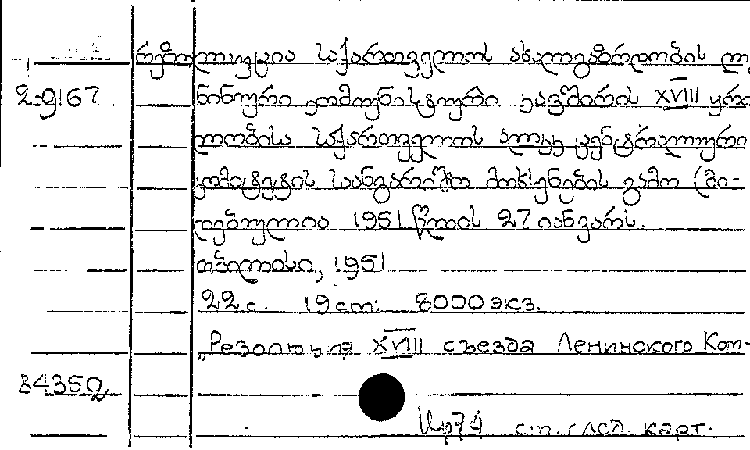 რეზოლუცია საქართველოს ახალგაზრდობის ლე
2.9167 ნინური კომუნისტური კავშირის XVIII ყრი
ლობისა საქართველოს ალკკ ცენტრალური
კომიტეტის საანგარიშო მოხსენების გამო (მი-
ღებულია 1951 წლის 27 იანვარს.
თბილისი, 1951
22 с. 19 cm. 8000 экз.
„Резолюция XVIII съезда Ленинского Ком-
84352
Цр74 карт.